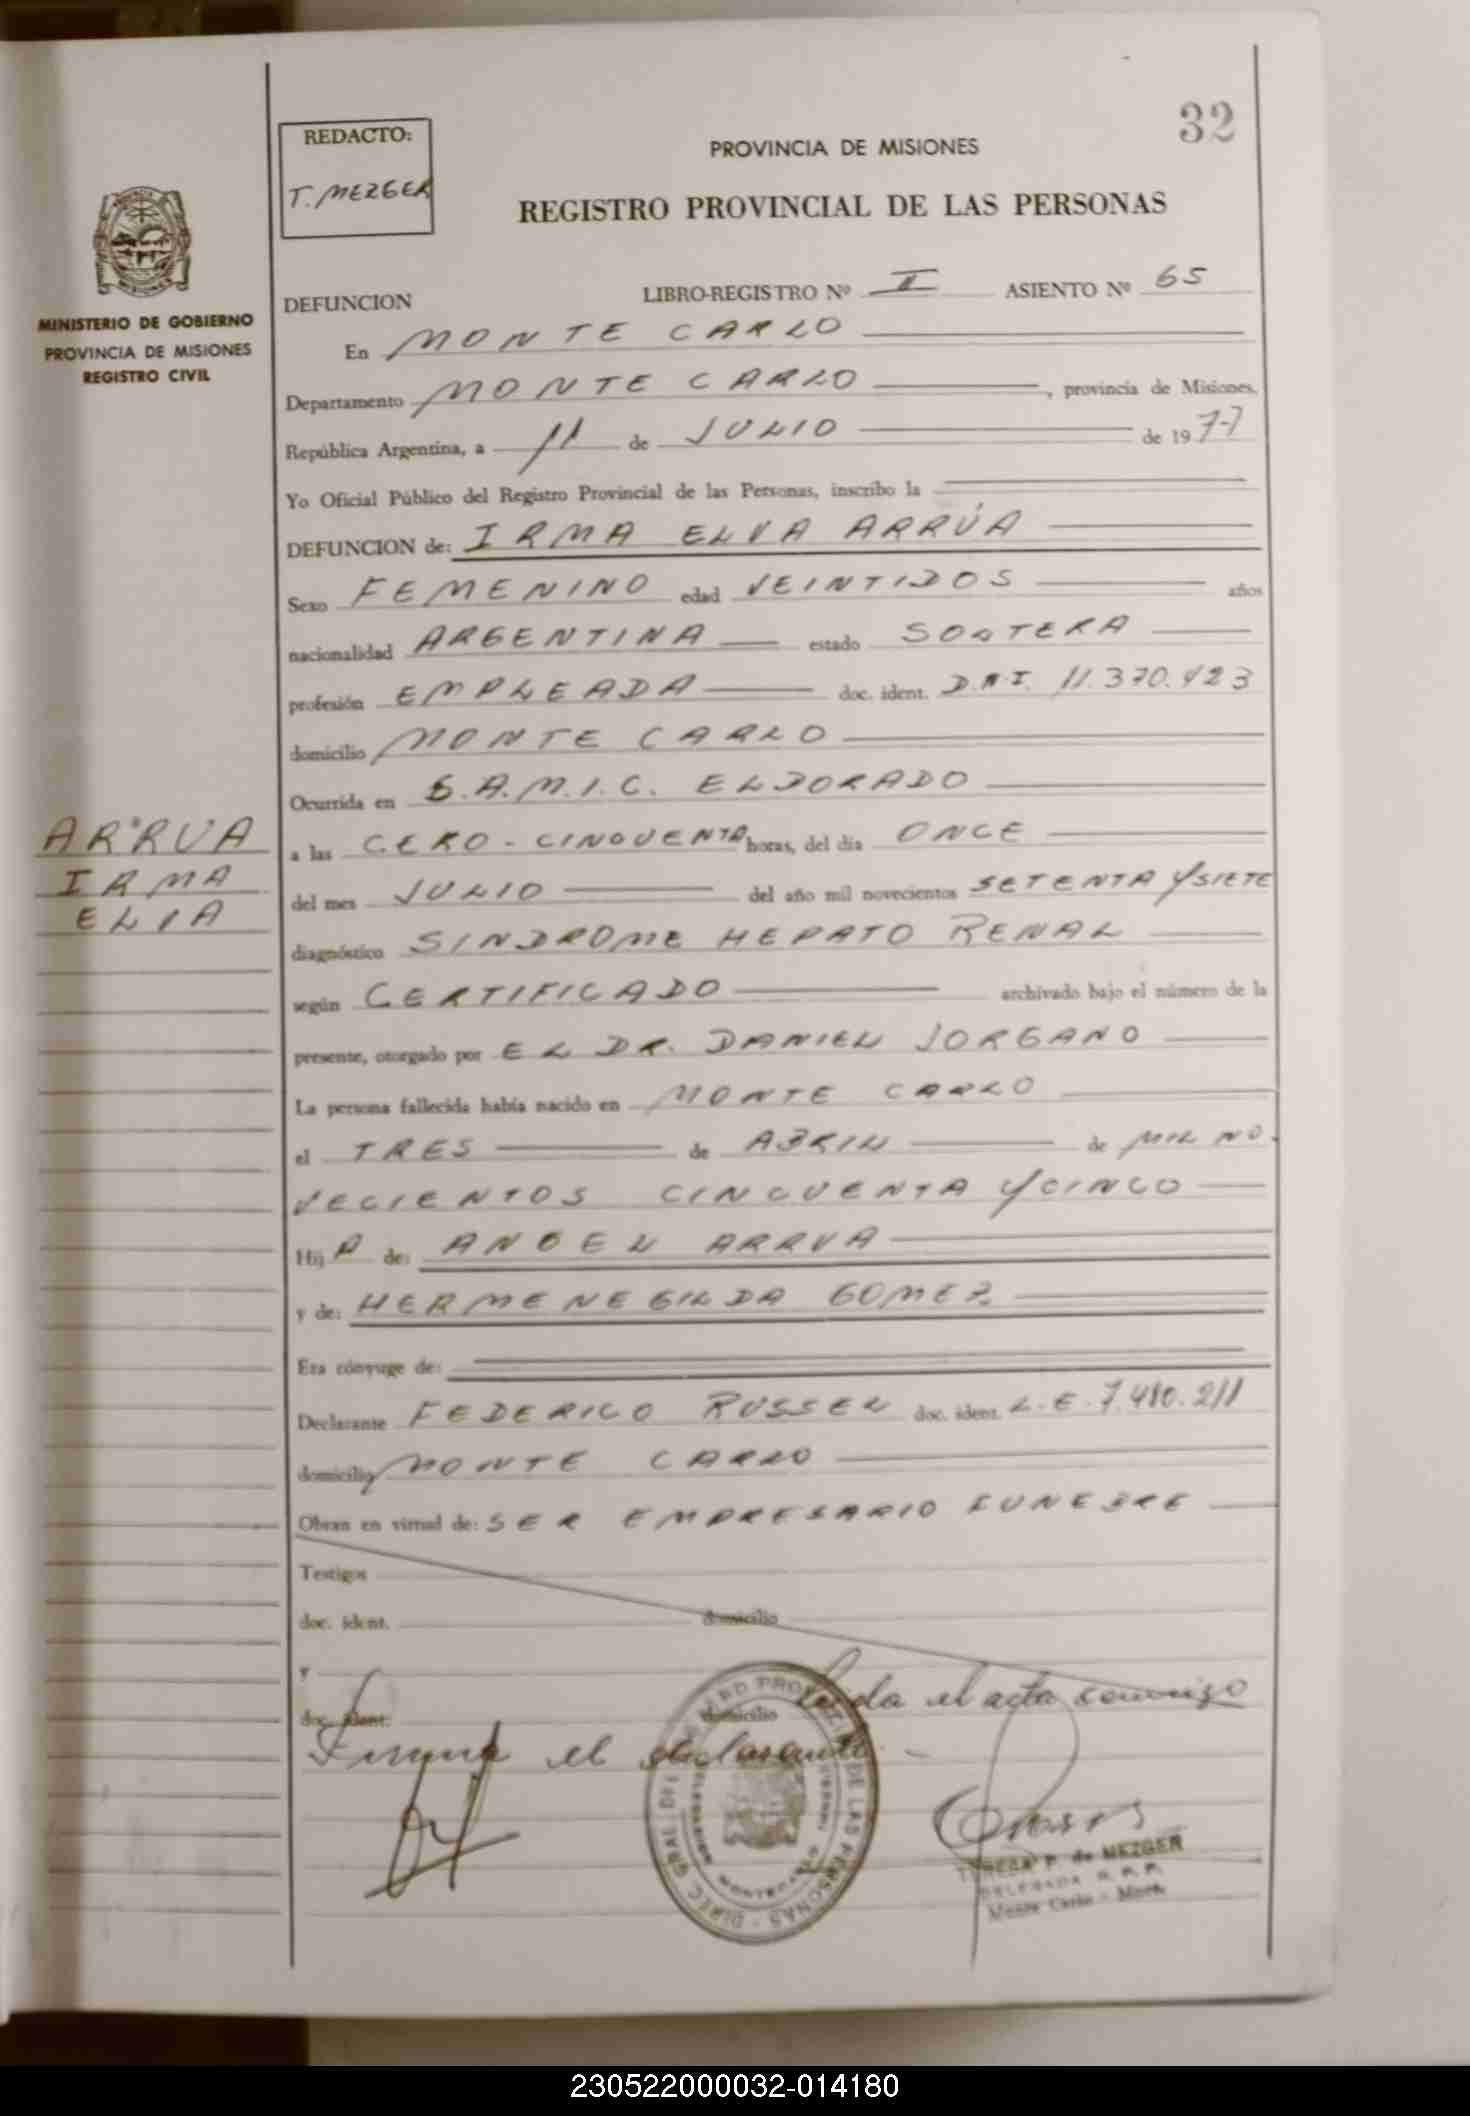 32
REDACTO:
T. MEZGER
PROVINCIA DE MISIONES
REGISTRO PROVINCIAL DE LAS PERSONAS
MINISTERIO DE GOBIERNO
PROVINCIA DE MISIONES
REGISTRO CIVIL
DEFUNCION LIBRO-REGISTRO Nº II ASIENTO Nº 65
En MONTE CARLO
Departamento MONTE CARLO, provincia de Misiones,
República Argentina, a 11 de JULIO de 1977
Yo Oficial Público del Registro Provincial de las Personas, inscribo la
DEFUNCION de: IRMA ELVA ARRÚA
Sexo FEMENINO edad VEINTIDOS años
nacionalidad ARGENTINA estado SOLTERA
profesión EMPLEADA doc. ident. D.N.I. 11.370.423
domicilio MONTE CARLO
Ocurrida en S.A.M.I.C. ELDORADO
a las CERO - CINQUENTA horas, del día ONCE
del mes JULIO del año mil novecientos SETENTA Y SIETE
diagnóstico SINDROME HEPATO RENAL
según CERTIFICADO archivado bajo el número de la
presente, otorgado por EL DR. DANIEL JORGANO
La persona fallecida había nacido en MONTE CARLO
el TRES de ABRIL de MIL NO-
VECIENTOS CINCUENTA Y CINCO
Hij A de: ANGEL ARRUA
y de: HERMENEGILDA GOMEZ
Era cónyuge de:
Declarante FEDERICO RUSSEL doc. ident. L.E. 7.480.211
domicilio MONTE CARLO
Obran en virtud de: SER EMPRESARIO FUNEBRE
Testigos
doc. ident. domicilio
y
doc. ident. domicilio
Leida el acta conmigo
Firma el declarante
ARRUA
IRMA
ELVA
TERESA P. de MEZGER
DELEGADA R. P. P.
Monte Carlo - Mnes.
230522000032-014180